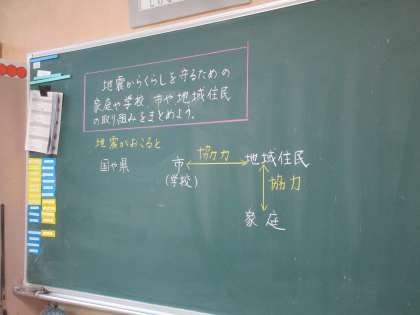 地震からくらしを守るための
家庭や学校、市や地域住民
の取り組みをまとめよう。
地震がおこると
国や県 市 協力 地域住民
(学校) 協力
家庭